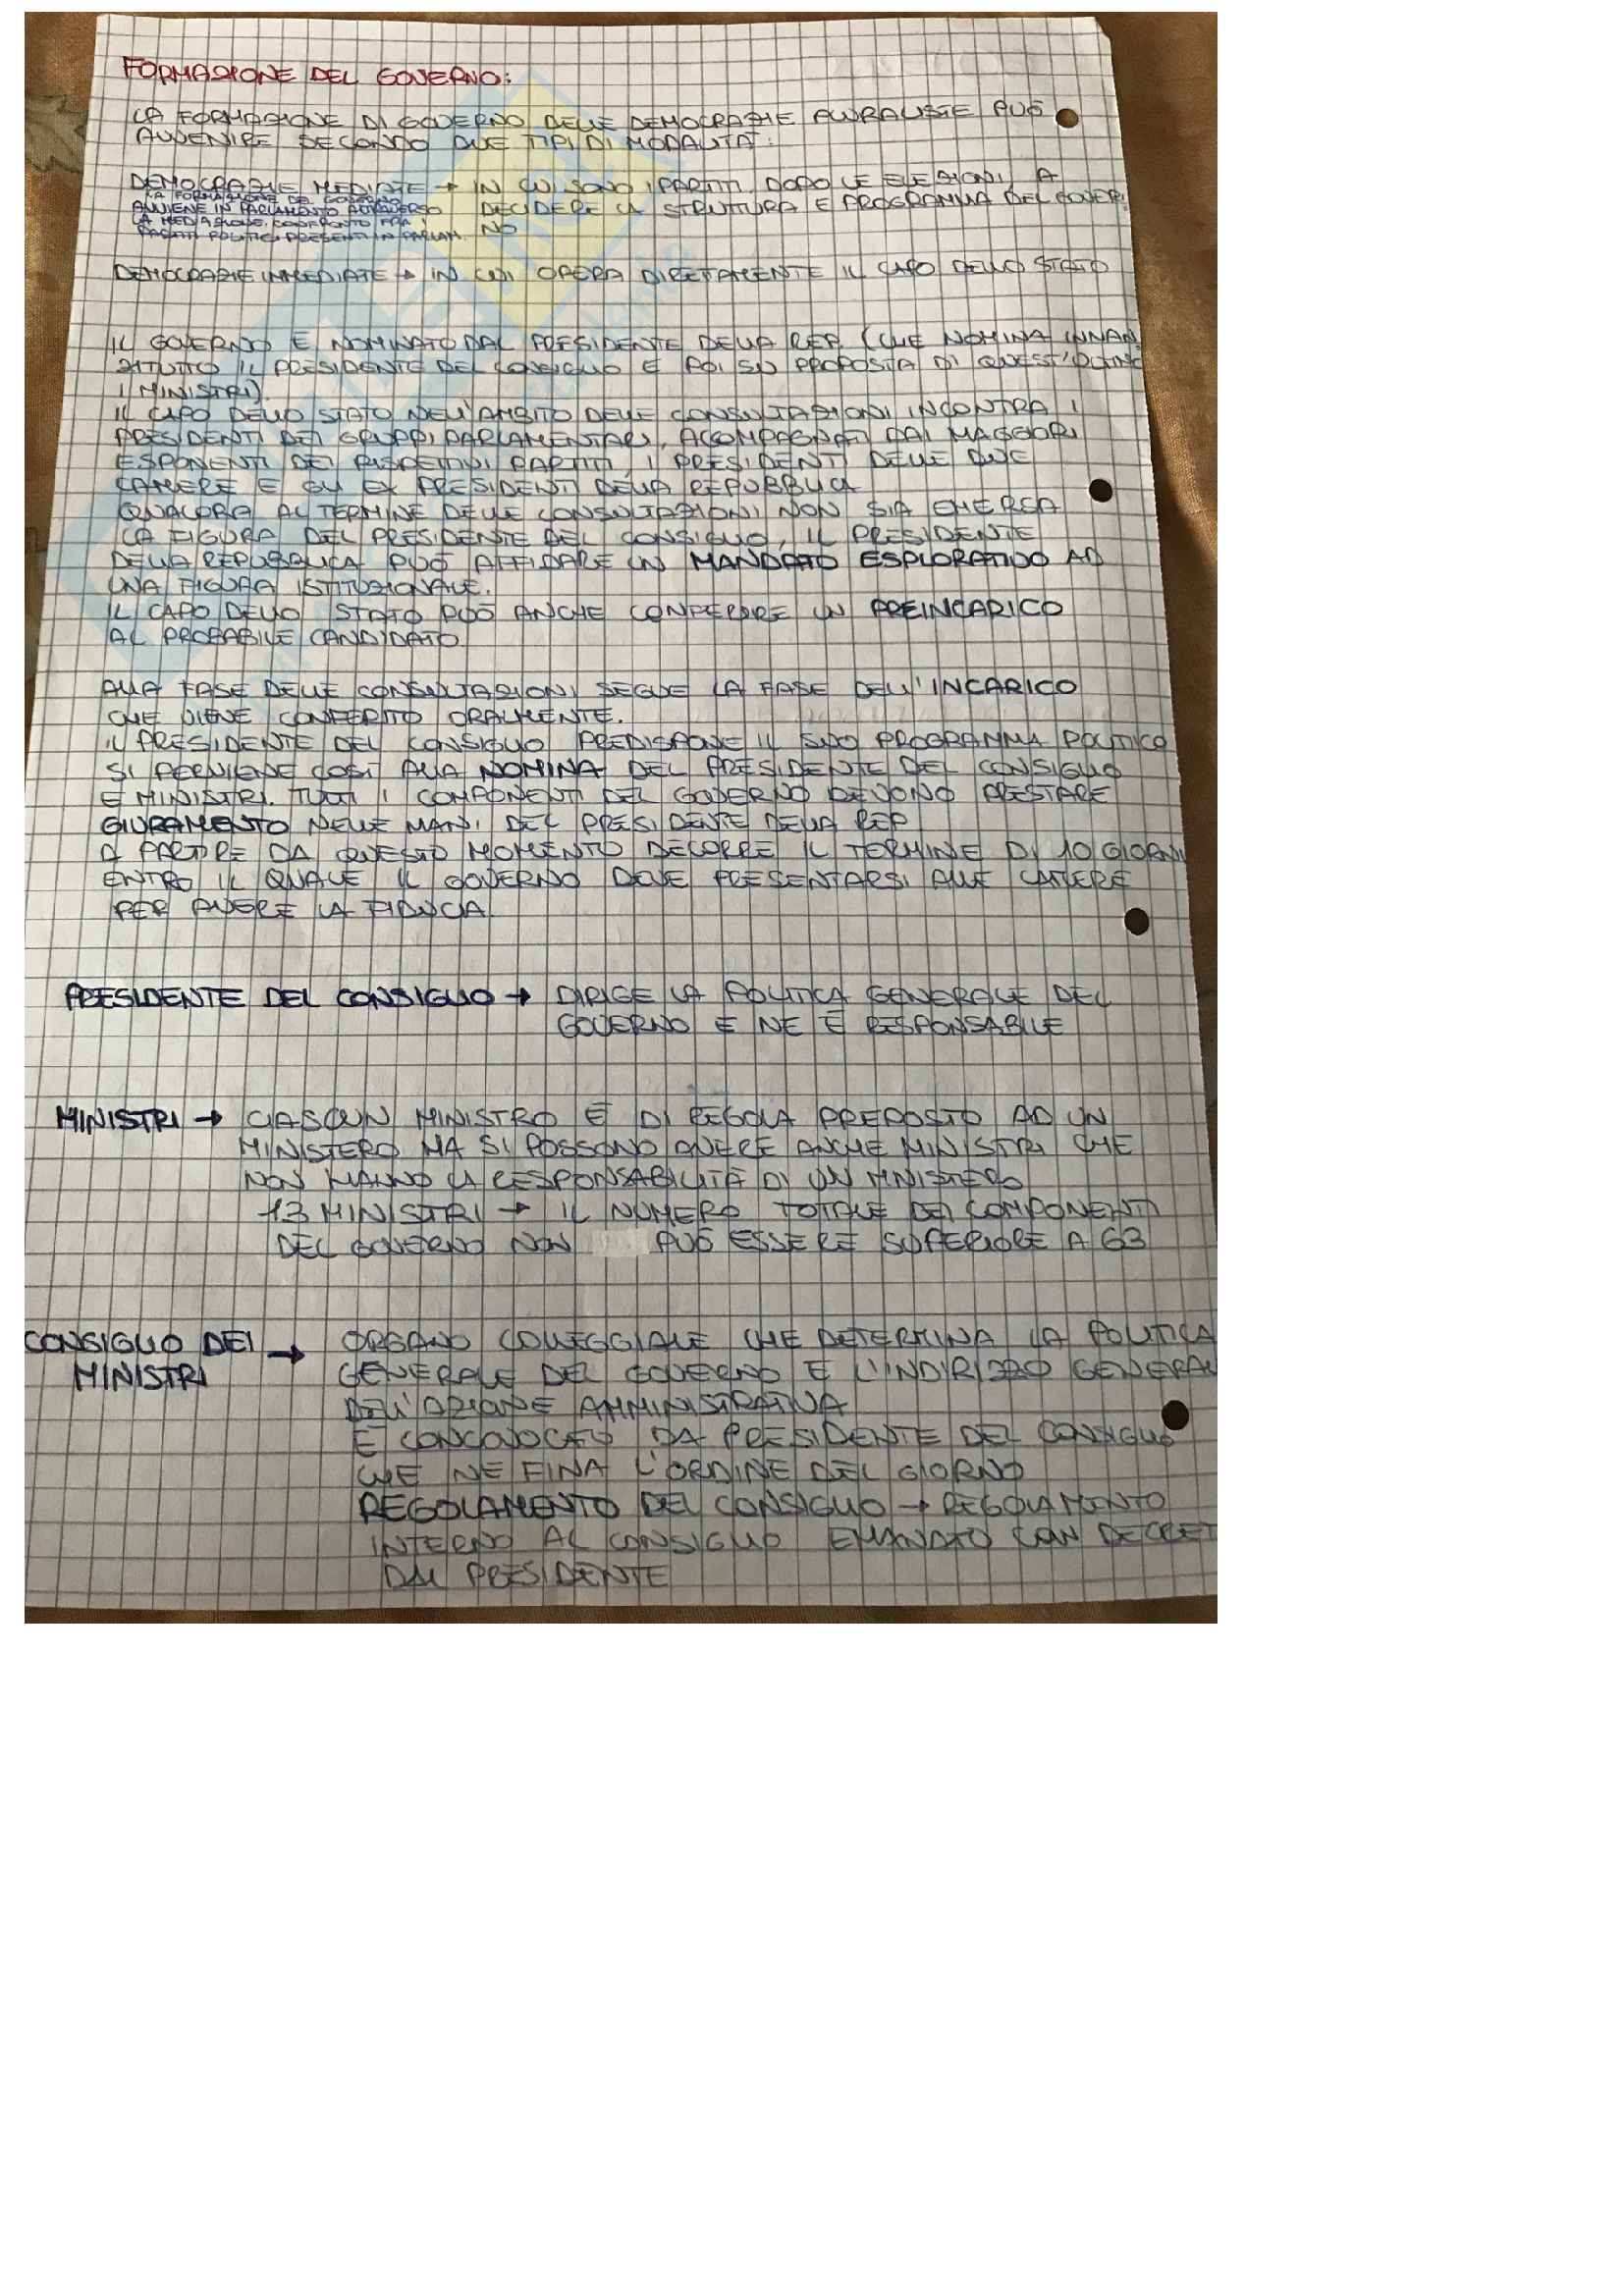 FORMAZIONE DEL GOVERNO:
LA FORMAZIONE DI GOVERNO DELLE DEMOCRAZIE PLURALISTE PUÒ
AVVENIRE SECONDO DUE TIPI DI MODALITÀ:
DEMOCRAZIE MEDIATE → IN CUI SONO I PARTITI, DOPO LE ELEZIONI, A
DECIDERE LA STRUTTURA E PROGRAMMA DEL GOVER
NO
LA FORMAZIONE DEL GOVERNO
AVVIENE IN PARLAMENTO ATTRAVERSO
LA MEDIAZIONE, CONFRONTO FRA I
PARTITI POLITICI PRESENTI IN PARLAM.
DEMOCRAZIE IMMEDIATE → IN CUI OPERA DIRETTAMENTE IL CAPO DELLO STATO
IL GOVERNO È NOMINATO DAL PRESIDENTE DELLA REP. (CHE NOMINA INNAN
ZITUTTO IL PRESIDENTE DEL CONSIGLIO E POI SU PROPOSTA DI QUEST'ULTIMO
I MINISTRI).
IL CAPO DELLO STATO NELL'AMBITO DELLE CONSULTAZIONI INCONTRA I
PRESIDENTI DEI GRUPPI PARLAMENTARI, ACOMPAGNATI DAI MAGGIORI
ESPONENTI DEI RISPETTIVI PARTITI, I PRESIDENTI DELLE DUE
CAMERE E GLI EX PRESIDENTI DELLA REPUBBLICA
QUALORA AL TERMINE DELLE CONSULTAZIONI NON SIA EMERSA
LA FIGURA DEL PRESIDENTE DEL CONSIGLIO, IL PRESIDENTE
DELLA REPUBBLICA PUÒ AFFIDARE UN MANDATO ESPLORATIVO AD
UNA FIGURA ISTITUZIONALE.
IL CAPO DELLO STATO PUÒ ANCHE CONFERIRE UN PREINCARICO
AL PROBABILE CANDIDATO.
ALLA FASE DELLE CONSULTAZIONI SEGUE LA FASE DELL'INCARICO
CHE VIENE CONFERITO ORALMENTE.
IL PRESIDENTE DEL CONSIGLIO PREDISPONE IL SUO PROGRAMMA POLITICO
SI PERVIENE COSÌ ALLA NOMINA DEL PRESIDENTE DEL CONSIGLIO
E MINISTRI. TUTTI I COMPONENTI DEL GOVERNO DEVONO PRESTARE
GIURAMENTO NELLE MANI DEL PRESIDENTE DELLA REP
A PARTIRE DA QUESTO MOMENTO DECORRE IL TERMINE DI 10 GIORNI
ENTRO IL QUALE IL GOVERNO DEVE PRESENTARSI ALLE CAMERE
PER AVERE LA FIDUCIA.
PRESIDENTE DEL CONSIGLIO → DIRIGE LA POLITICA GENERALE DEL
GOVERNO E NE È RESPONSABILE
MINISTRI → CIASCUN MINISTRO È DI REGOLA PREPOSTO AD UN
MINISTERO MA SI POSSONO AVERE ANCHE MINISTRI CHE
NON HANNO LA RESPONSABILITÀ DI UN MINISTERO
13 MINISTRI → IL NUMERO TOTALE DEI COMPONENTI
DEL GOVERNO NON PUÒ ESSERE SUPERIORE A 63
CONSIGLIO DEI → ORGANO COLLEGGIALE CHE DETERMINA LA POLITICA
MINISTRI GENERALE DEL GOVERNO E L'INDIRIZZO GENERAL
DELL'AZIONE AMMINISTRATIVA
È CONCOVOCATO DA PRESIDENTE DEL CONSIGLIO
CHE NE FINA L'ORDINE DEL GIORNO
REGOLAMENTO DEL CONSIGLIO → REGOLAMINTO
INTERNO AL CONSIGLIO EMANDATO CON DECRET
DAL PRESIDENTE